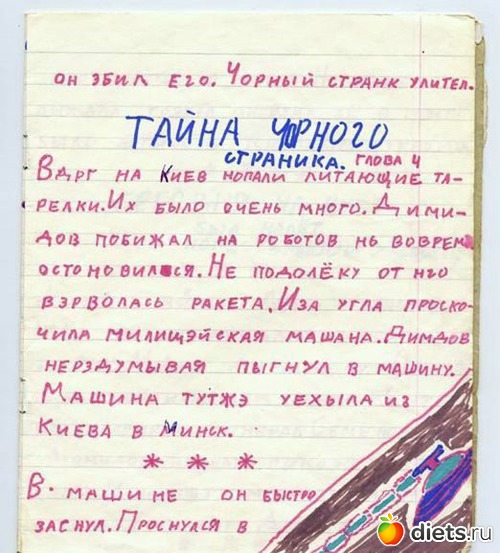 он эбил его. Чорный странк улител.
ТАЙНА ЧОРНОГО
СТРАНИКА. ГЛОВА 4
Вдрг на Киев нопали литающие та-
релки. Их было очень много. Дими-
дов побижал на роботов но воврем
остоновился. Не подолёку от него
взрволась ракета. Иза угла проско-
чила милищэйская машана. Димдов
нерздумывая пыгнул в машину.
Машина тутжэ уехыла из
Киева в Минск.
* * *
В. машине он быстро
заснул. Проснулся в
diets.ru